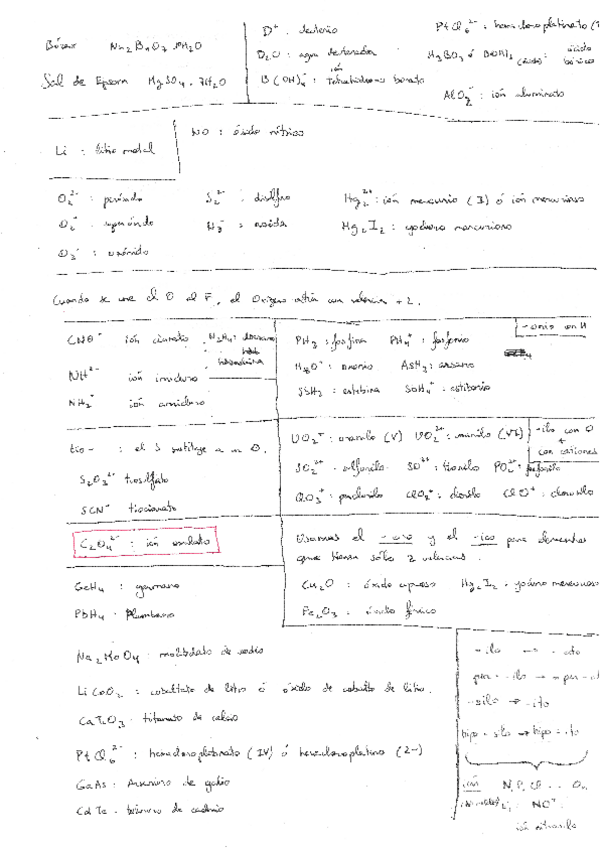 Bórax Na₂B₄O₇ · 10H₂O
Sal de Epsom MgSO₄ · 7H₂O
D⁺ : deuterio
D₂O : agua
B(OH)₄⁻ : ión borato
PtCl₆²⁻ : hexacloroplatinato
H₃BO₃ ó B(OH)₃ ácido bórico
AlO₂⁻ : ión aluminato
Li : litio metal
NO : óxido nítrico
O₂²⁻ : peróxido
O₂⁻ : superóxido
O₃⁻ : ozónido
S₂²⁻ : disulfuro
N₃⁻ : azida
Hg₂²⁺ : ión mercurio (I) ó ión mercurioso
Hg₂I₂ : yoduro mercurioso
Cuando se une el O al F, el Oxígeno actúa con valencia +2.
CNO⁻ ión cianato
N₂H₄ :
NH²⁻ ión imiduro
NH₂⁻ ión amiduro
PH₃ : fosfina PH₄⁺ : fosfonio
-onio con H
H₃O⁺ : AsH₃ : arsano
SbH₃ : estibina SbH₄⁺ : estibonio
tio- : el S sustituye a un O.
S₂O₃²⁻ tiosulfato
SCN⁻ tiocianato
UO₂⁺ : uranilo (V) UO₂²⁺ : uranilo (VI)
-ilo con O
+
con cationes
SO₂²⁺ : sulfonilo SO²⁺ : tionilo
ClO₃⁺ : perclorilo ClO₂⁺ : clorilo ClO⁺ : clorosilo
C₂O₄²⁻ : ión oxalato
Usamos el -oso y el -ico para elementos
que tienen sólo 2 valencias.
GeH₄ : germano
PbH₄ : Plumbano
Cu₂O : óxido cuproso Hg₂I₂ : yoduro mercurioso
Fe₂O₃ : óxido férrico
Na₂MoO₄ : molibdato de sodio
LiCoO₂ : cobaltato de litio ó óxido de cobalto de litio.
CaTiO₃ : titanato de calcio
PtCl₆²⁻ : hexacloroplatinato (IV) ó hexacloroplatino (2-)
GaAs : Arseniuro de galio
CdTe : telururo de cadmio
-ilo → -ato
per - -ilo → per -
-silo → -ito
hipo - silo → hipo - ito
ión N, P, Cl ... O
NO⁺
ión nitrosilo